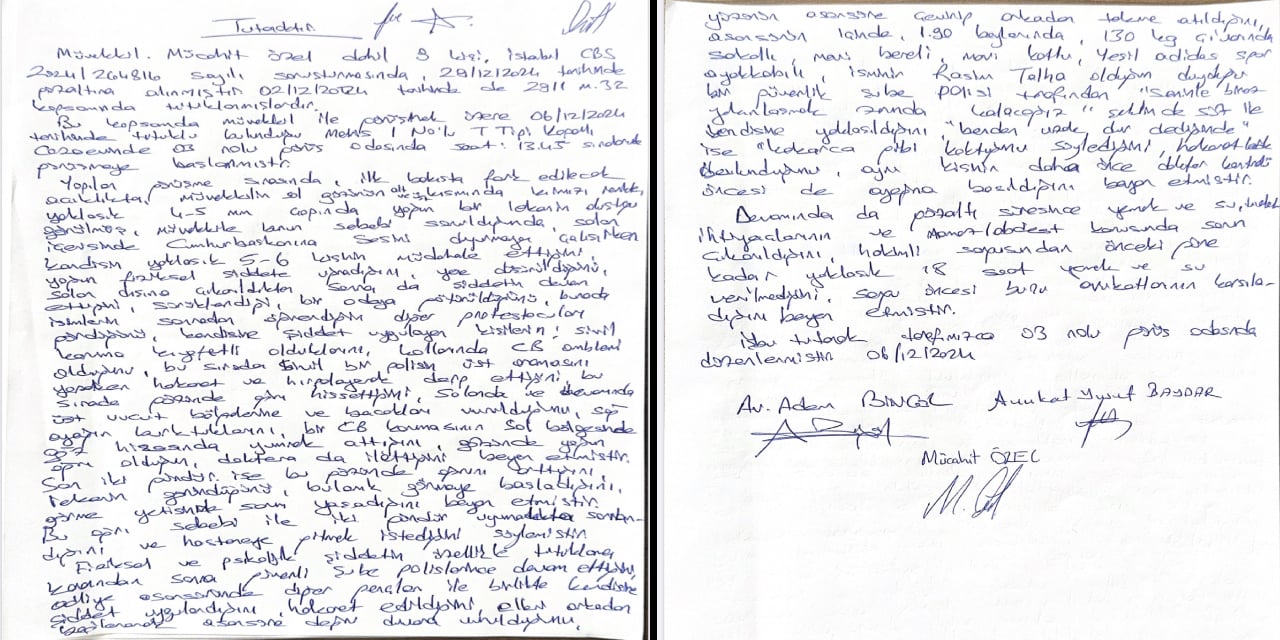 Tutanaktır
Müvekkil Mücahit Özel dahil 9 kişi, İstanbul CBS
2024/264816 sayılı soruşturmasında, 29/12/2024 tarihinde
gözaltına alınmıştır 02/12/2024 tarihinde de 2911 m.32
kapsamında tutuklanmışlardır.
Bu kapsamda müvekkil ile görüşmek üzere 06/12/2024
tarihinde tutuklu bulunduğu Metris 1 No'lu T Tipi Kapalı
Cezaevinde 03 nolu görüş odasında saat: 13.45 sıralarında
görüşmeye başlanmıştır.
Yapılan görüşme sırasında, ilk bakışta fark edilecek
açıklıkta, müvekkilin sol gözünün alt kısmında kırmızı renkte,
yaklaşık 4-5 mm çapında yoğun bir lekenin oluştuğu
görülmüş, müvekkile bunun sebebi sorulduğunda, salon
içerisinde Cumhurbaşkanına sesini duyurmaya çalışırken
kendisine yaklaşık 5-6 kişinin müdahale ettiğini,
yoğun fiziksel şiddete uğradığını, yere düşürüldüğünü,
salon dışına çıkarıldıktan sonra da şiddetin devam
ettiğini, sürüklendiği, bir odaya götürüldüğünü, burada
isimlerini sonradan öğrendiğini diğer protestocuları
gördüğünü, kendisine şiddet uygulayan kişilerin; sivil
koruma kıyafetli olduklarını, kollarında CB amblemi
olduğunu, bu sırada sivil bir polisin üst aramasını
yaparken hakaret ve hırpalayarak darp ettiğini, bu
sırada gözünde ağrı hissettiğini, salonda ve devamında
üst vücut bölgelerine ve bacakları vurulduğunu, sağ
ayağını burktuklarını, bir CB korumasının sol bölgesinde
göz hizasında yumruk attığını, gözünde yoğun
ağrı olduğunu, doktora da ilettiğini beyan etmiştir.
Son iki gündür ise bu gözünde ağrının arttığını,
lekenin göründüğünü, bulanık görmeye başladığını,
görme yetisinde sorun yaşadığını beyan etmiştir.
Bu ağrı sebebi ile iki gündür uyumakta zorlan-
dığını ve hastaneye gitmek istediğini söylemiştir
Fiziksel ve psikolojik şiddetin özellikle tutuklama
kararından sonra güvenlik şube polislerince devam ettiğini,
adliye asansöründe diğer gençler ile birlikte kendisine
şiddet uygulandığını, hakaret edildiğini, elleri arkadan
bağlanarak asansöre değin duvara vurulduğunu,
yüzünün asansöre çevrilip arkadan tekme atıldığını,
asansörün içinde, 1.90 boylarında, 130 kg civarında
sakallı, mavi bereli, mavi kotlu, yeşil adidas spor
ayakkabılı, isminin Rasim Talha olduğunu duyduğu
bir güvenlik şube polisi tarafından "Seninle biraz
yakınlaşmak zorunda kalacağız" şeklinde söz ile
kendisine yaklaşıldığını, "benden uzak dur dediğinde"
ise "kokarca gibi koktuğunu söylediğini, hakarette
bulunduğunu, aynı kişinin daha önce doktor kontrolü
öncesi de ayağına basıldığını beyan etmiştir.
Devamında da gözaltı süresince yemek ve su, tuvalet
ihtiyaçlarının ve namaz/abdest konusunda sorun
çıkarıldığını, hakimlik sorgusundan önceki güne
kadar yaklaşık 18 saat yemek ve su
verilmediğini, sorgu öncesi bunu avukatlarının karşıla-
dığını beyan etmiştir.
İşbu tutanak tarafımızca 03 nolu görüş odasında
düzenlenmiştir 06/12/2024
Av. Adem BİNGÖL Avukat Yusuf BAYDAR
Mücahit ÖZEL